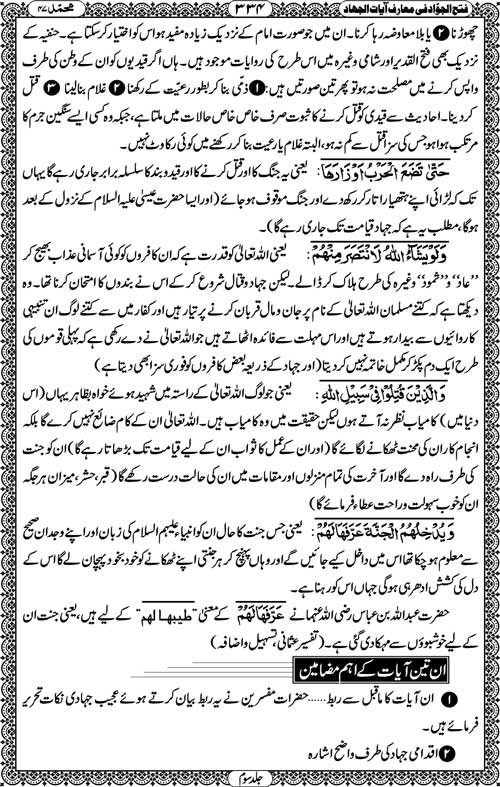 فتح الجوّاد فی معارف آیات الجهاد ۳۳۴ محمّد ۴۷
چھوڑنا ❷ یا بلا معاوضہ رہا کرنا۔ ان میں جو صورت امام کے نزدیک زیادہ مفید ہو اس کو اختیار کر سکتا ہے۔ حنفیہ کے
نزدیک بھی فتح القدیر اور شامی وغیرہ میں اس طرح کی روایات موجود ہیں۔ ہاں اگر قیدیوں کو ان کے وطن کی طرف
واپس کرنے میں مصلحت نہ ہو تو پھر تین صورتیں ہیں: ❶ ذمی بنا کر بطور رعیّت کے رکھنا ❷ غلام بنا لینا ❸ قتل
کر دینا۔ احادیث سے قیدی کو قتل کرنے کا ثبوت صرف خاص خاص حالات میں ملتا ہے، جبکہ وہ کسی ایسے سنگین جرم کا
مرتکب ہوا ہو جس کی سزا قتل سے کم نہ ہو، البتہ غلام یا رعیت بنا کر رکھنے میں کوئی رکاوٹ نہیں۔
حَتّٰی تَضَعَ الْحَرْبُ اَوْزَارَهَا: یعنی یہ جنگ کا اور قتل کرنے کا اور قید و بند کا سلسلہ برابر جاری رہے گا یہاں
تک کہ لڑائی اپنے ہتھیار اتار کر رکھ دے اور جنگ موقوف ہو جائے (اور ایسا حضرت عیسیٰ علیہ السلام کے نزول کے بعد
ہوگا، مطلب یہ ہے کہ جہاد قیامت تک جاری رہے گا)۔
وَلَوْ یَشَآءُ اللّٰهُ لَانْتَصَرَ مِنْهُمْ: یعنی اللہ تعالیٰ کو قدرت ہے کہ ان کافروں کو کوئی آسمانی عذاب بھیج کر
"عاد" و "ثمود" وغیرہ کی طرح ہلاک کر ڈالے۔ لیکن جہاد و قتال شروع کر کے اس نے بندوں کا امتحان کرنا تھا۔ وہ
دیکھتا ہے کہ کتنے مسلمان اللہ تعالیٰ کے نام پر جان و مال قربان کرنے پر تیار ہیں اور کفار میں سے کتنے لوگ ان تنبیہی
کاروائیوں سے بیدار ہوتے ہیں اور اس مہلت سے فائدہ اٹھاتے ہیں جو اللہ تعالیٰ نے دے رکھی ہے کہ پہلی قوموں کی
طرح ایک دم پکڑ کر مکمل خاتمہ نہیں کر دیتا (اور جہاد کے ذریعہ بعض کافروں کو فوری سزا بھی دیتا ہے)
وَالَّذِیْنَ قُتِلُوْا فِیْ سَبِیْلِ اللّٰهِ: یعنی جو لوگ اللہ تعالیٰ کے راستہ میں شہید ہوئے خواہ بظاہر یہاں (اس
دنیا میں) کامیاب نظر نہ آتے ہوں لیکن حقیقت میں وہ کامیاب ہیں۔ اللہ تعالیٰ ان کے کام ضائع نہیں کرے گا بلکہ
انجام کار ان کی محنت ٹھکانے لگائے گا (اور ان کے عمل کا ثواب ان کے لیے قیامت تک بڑھاتا رہے گا) ان کو جنت
کی طرف راہ دے گا اور آخرت کی تمام منزلوں اور مقامات میں ان کی حالت درست رکھے گا (قبر، حشر، میزان ہر جگہ
ان کو خوب سہولت و راحت عطاء فرمائے گا)
وَیُدْخِلُهُمُ الْجَنَّةَ عَرَّفَهَا لَهُمْ: یعنی جس جنت کا حال ان کو انبیاء علیہم السلام کی زبان اور اپنے وجدان صحیح
سے معلوم ہو چکا تھا اس میں داخل کیے جائیں گے اور وہاں پہنچ کر ہر جنتی اپنے ٹھکانے کو خود بخود پہچان لے گا اس کے
دل کی کشش ادھر ہی ہوگی جہاں اس کو رہنا ہے۔
حضرت عبداللہ بن عباس رضی اللہ عنہما نے عَرَّفَهَا لَهُمْ کے معنیٰ "طیبها لهم" کے لیے ہیں، یعنی جنت ان
کے لیے خوشبوؤں سے مہکا دی گئی ہے۔ (تفسیر عثمانی، تسہیل و اضافہ)
ان تین آیات کے اہم مضامین
❶ ان آیات کا ماقبل سے ربط...... حضرات مفسرین نے یہ ربط بیان کرتے ہوئے عجیب جہادی نکات تحریر
فرمائے ہیں۔
❷ اقدامی جہاد کی طرف واضح اشارہ
جلد سوم